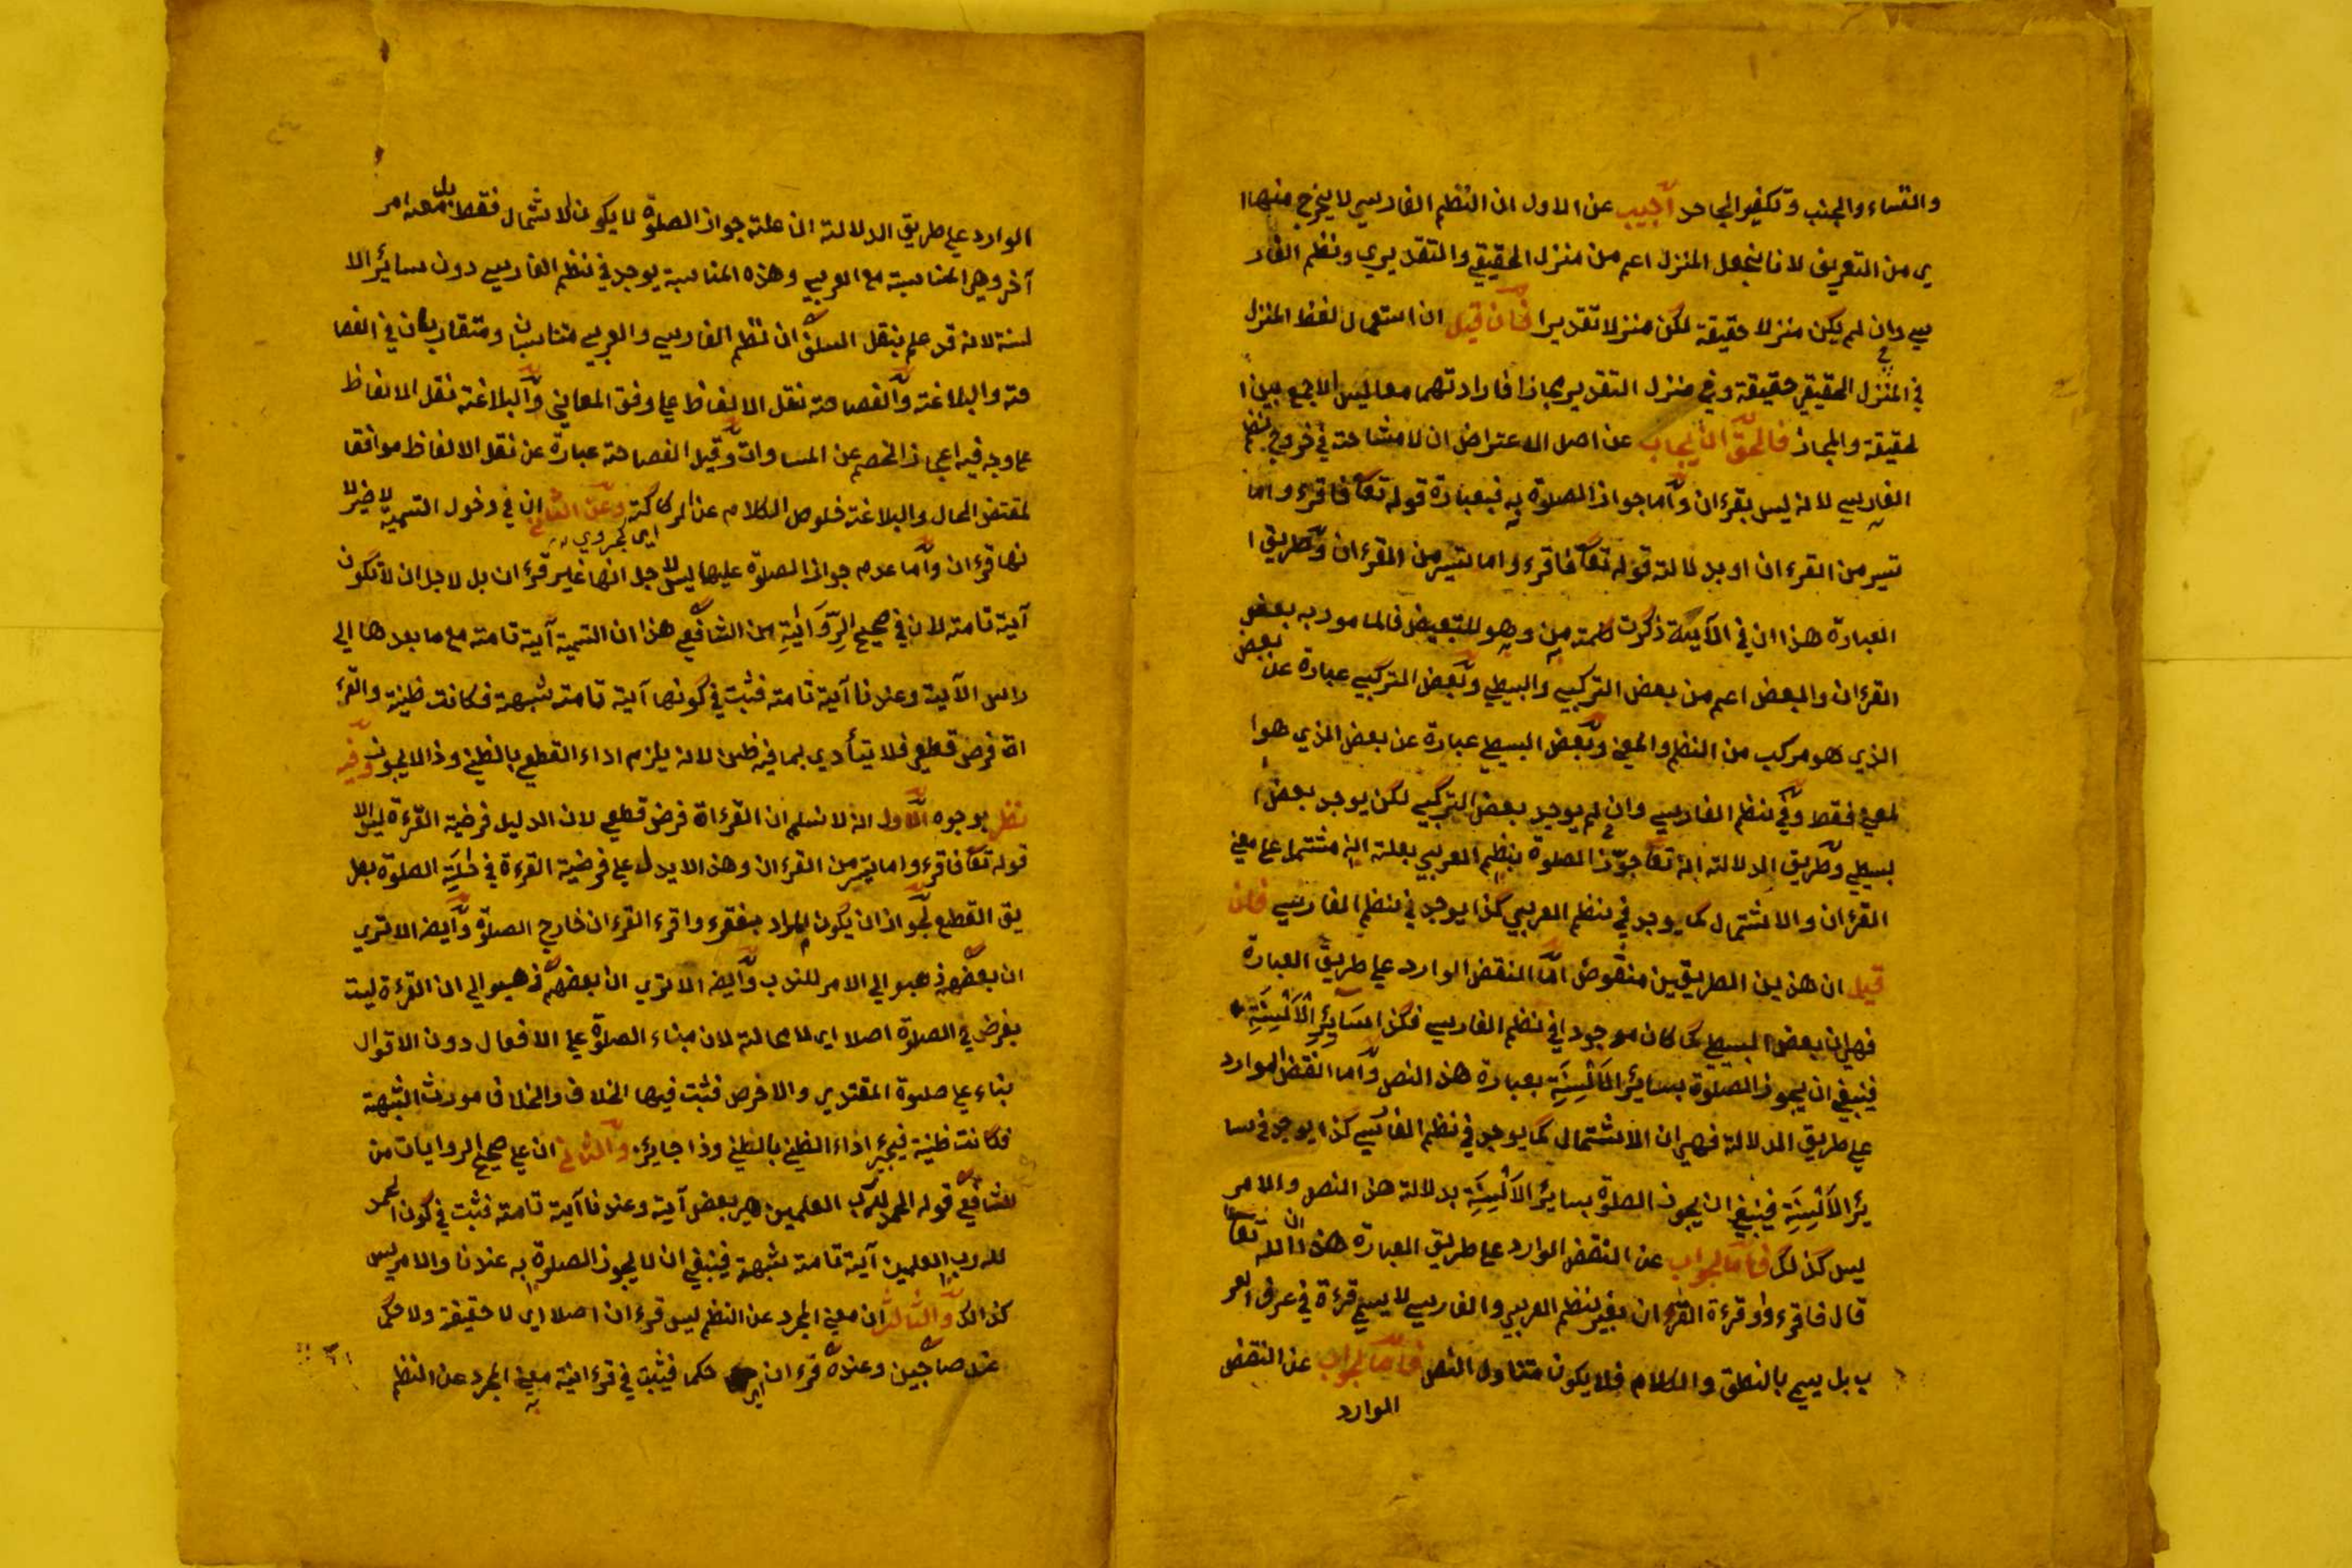 والنفساء والجنب وتكفير الجاحد أجيب عن الاول ان النظم الفارسي لا يخرج منها
ري من التعريف لانا نجعل المنزل اعم من منزل الحقيقي والتقديري ونظم الفار
سي وان لم يكن منزلا حقيقة لكن منزلا تقديرا فان قيل ان استعمال لفظ المنزل
في المنزل الحقيقي حقيقة وفي منزل التقديري مجازا فارادتهما معا ليس الا جمع بين ا
لحقيقة والمجاز فالحق ان يجاب عن اصل الاعتراض ان لا مشاحة في خروج نظم
الفارسي لانه ليس بقرءان واما جواز الصلوة به فبعبارة قوله تعا فاقرءوا ما
تيسر من القرءان او بدلالة قوله تعا فاقرءوا ما تيسر من القرءان وطريق ا
لعبارة هذا ان في الآية ذكرت كلمة من وهو للتبعيض فالمامور به بعض
القرءان والبعض اعم من بعض التركيبي والبسيطي وبعض التركيبي عبارة عن بعض
الذي هو مركب من النظم والمعنى وبعض البسيطي عبارة عن بعض الذي هو ا
لمعنى فقط وفي نظم الفارسي وان لم يوجد بعض التركيبي لكن يوجد بعض ا
لبسيطي وطريق الدلالة انه تعا جوز الصلوة بنظم العربي بعلة انه مشتمل على معنى
القرءان والاشتمال كما يوجد في نظم العربي كذا يوجد في نظم الفارسي فان
قيل ان هذين الطريقين منقوض اما النقض الوارد على طريق العبارة
فهي ان بعض البسيطي كما كان موجودا في نظم الفارسي فكذا لسائر الألسنة
فينبغي ان يجوز الصلوة بسائر الألسنة بعبارة هذا النص واما النقض الوارد
على طريق الدلالة فهي ان الاشتمال كما يوجد في نظم الفارسي كذا يوجد في سا
ئر الألسنة فينبغي ان يجوز الصلوة بسائر الألسنة بدلالة هذا النص والامر
ليس كذلك فاما الجواب عن النقض الوارد على طريق العبارة هذا ان الله تعا
قال فاقرءوا وقرءة القرءان بغير نظم العربي والفارسي لا يسمى قرءة في عرف العر
ب بل يسمى بالنطق والكلام فلا يكون متناول النص فاما الجواب عن النقض
الوارد
الوارد على طريق الدلالة ان علة جواز الصلوة لا يكون الاشتمال فقط بل معه امر
آخر وهي المناسبة مع العربي وهذه المناسبة يوجد في نظم الفارسي دون سائر الا
لسنة لانه قد علم بنقل السلف ان نظم الفارسي والعربي متناسبان ومتقاربان في الفصا
حة والبلاغة والفصاحة نقل الالفاظ على وفق المعاني والبلاغة نقل الالفاظ
على وجه فيه اعجاز الخصم عن المساوات وقيل الفصاحة عبارة عن نقل الالفاظ موافقا
لمقتضى الحال والبلاغة خلوص الكلام عن الركاكة وعن الثاني ان في دخول التسمية لا ضير لا
نها قرءان واما عدم جواز الصلوة عليها ليس لاجل انها غير قرءان بل لاجل ان لا تكون
آية تامة لان في صحيح الرواية من الشافعي هذا ان التسمية آية تامة مع ما بعدها الى
راس الآية وعندنا آية تامة فثبت في كونها آية تامة شبهة فكانت ظنية والقر
اءة فرض قطعي فلا يتأدى بما فيه ظن لانه يلزم اداء القطعي بالظني وذا لا يجوز وفيه
نظر بوجوه الاول انه لا نسلم ان القرءاة فرض قطعي لان الدليل فرضية القرءة ليس الا
قوله تعا فاقرءوا ما تيسر من القرءان وهذا لا يدل على فرضية القرءة في الصلوة بطر
يق القطع لجواز ان يكون المراد بفاقرءوا قرء القرءان خارج الصلوة وايضا الا ترى
ان بعضهم ذهبوا الى الامر للندب وايضا الا ترى ان بعضهم ذهبوا الى ان القرءة ليست
بفرض في الصلوة اصلا اي لا محالة لان مبناء الصلوة على الافعال دون الاقوال
بناء على صلوة المقتدي والاخرص فثبت فيها الخلاف والخلاف مورث الشبهة
فكانت ظنية فيجيز اداء الظني بالظني وذا جائز والثاني ان على صحيح الروايات من
الشافعي قوله الحمد لله رب العلمين هي بعض آية وعندنا آية تامة فثبت في كون الحمد
لله رب العلمين آية تامة شبهة فينبغي ان لا يجوز الصلوة به عندنا والامر ليس
كذالك والثالث ان معنى المجرد عن النظم ليس قرءان اصلا اي لا حقيقة ولا حكما
عند صاحبين وعنده قرءان حكما فيثبت في قرءانية معنى المجرد عن النظم